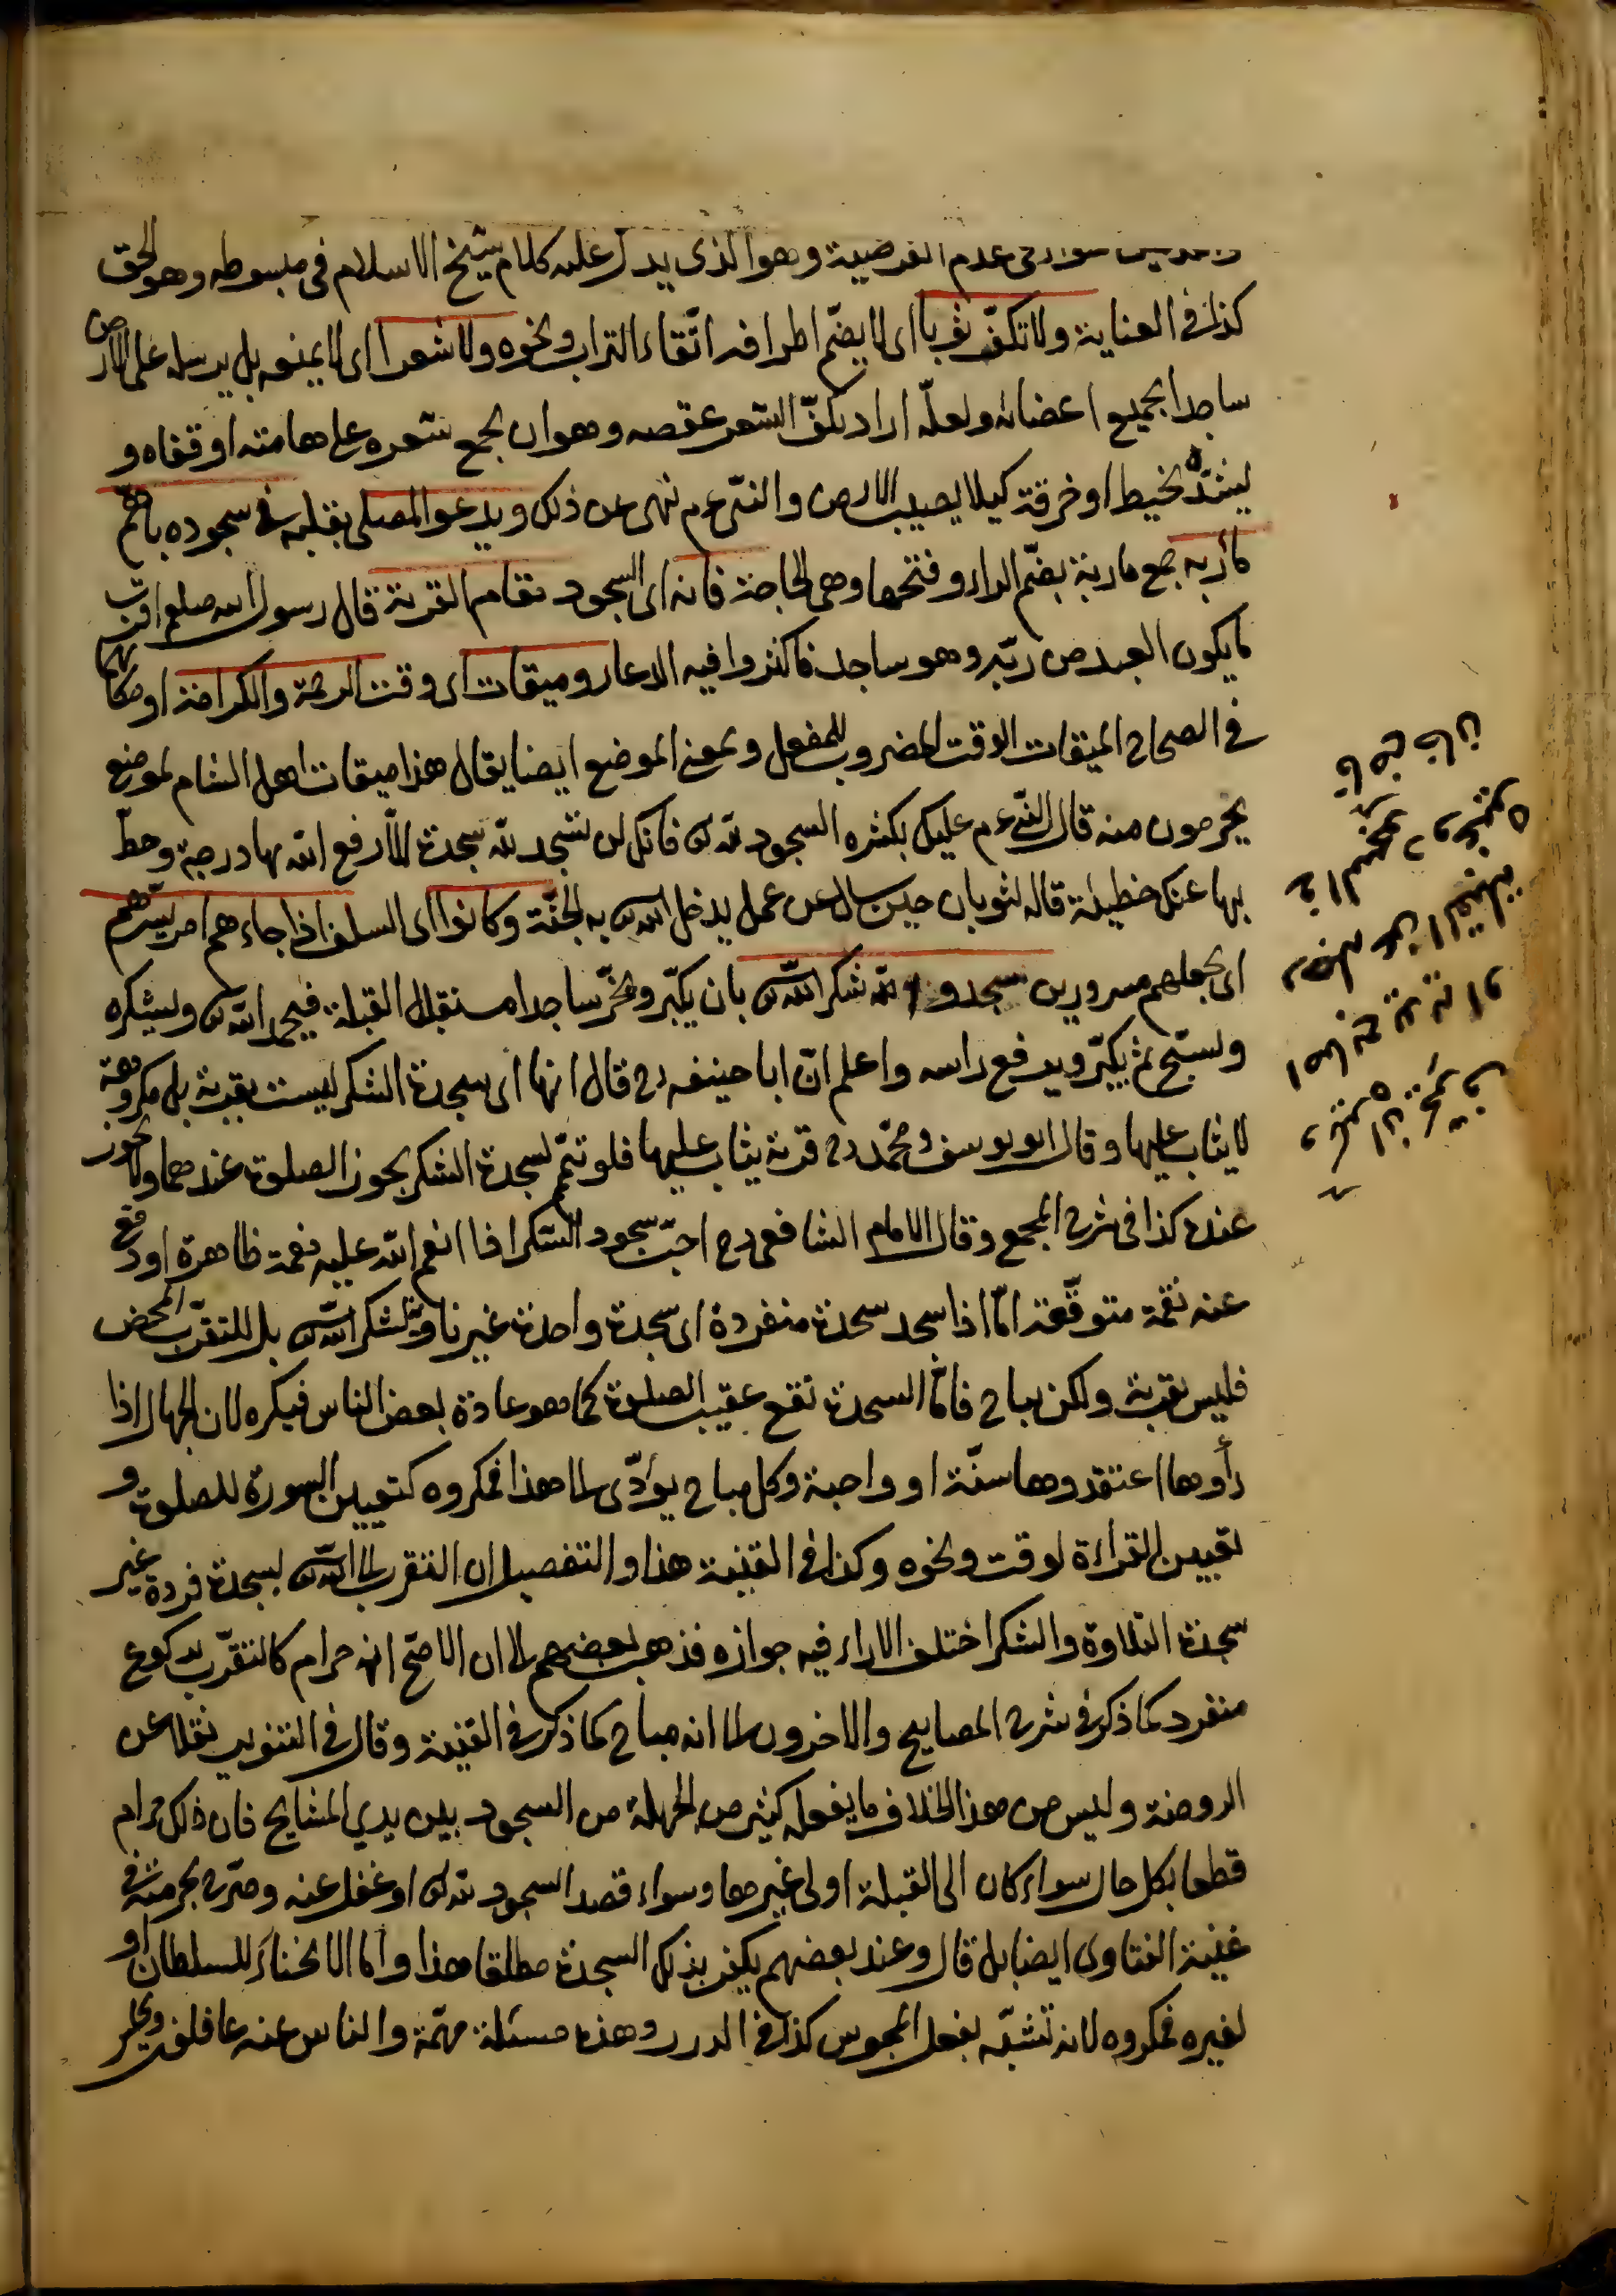 سواء فى عدم الفرضية وهو الذى يدل عليه كلام شيخ الاسلام فى مبسوطه وهو الحق
كذا فى العناية ولا تكفّ ثوبا اى لا يضمّ اطرافه اتّقاء التراب ونحوه ولا شعرا اى لا يمنعه بل يرسله على الارض
ساجدا بجميع اعضائه ولعلّه اراد بكفّ الشعر عقصه وهو ان يجمع شعره على هامته او قفاه و
يشدّه بخيط او خرقة كيلا يصيب الارض والنبى عم نهى عن ذلك ويدعو المصلى بقلبه فى سجوده باهمّ
مأربه جمع مأربة بضمّ الراء وفتحها وهى الحاجة فانه اى السجود مقام القربة قال رسول الله صلعم اقرب
ما يكون العبد من ربّه وهو ساجد فاكثروا فيه الدعاء وميقات اى وقت الرحمة والكرامة او مكانهما
فى الصحاح الميقات الوقت المضروب للفعل وبمعنى الموضع ايضا يقال هذا ميقات اهل الشام لموضع
يحرمون منه قال النبى عم عليك بكثره السجود لله تع فانك لن تسجد لله سجدة الّا رفع الله بها درجة وحطّ
بها عنك خطيئة قاله لثوبان حين سال عن عمل يدخل الله تع به الجنّة وكانوا اى السلف اذا جاءهم امر يسرّهم
اى يجعلهم مسرورين سجدوا لله شكر الله تع بان يكبّر ويخرّ ساجدا مستقبل القبلة فيحمد الله تع ويشكره
ويسبّح ثم يكبّر ويرفع راسه واعلم انّ ابا حنيفه رح قال انها اى سجدة الشكر ليست بقربة بل مكروهة
لا يثاب عليها وقال ابو يوسف ومحمّد رح قربة يثاب عليها فلو تيمّم لسجدة الشكر يجوز الصلوة عندهما ولا يجوز
عنده كذا فى شرح المجمع وقال الامام الشافعى رح احبّ سجود الشكر اذا انعم الله عليه نعمة ظاهرة او دفع
عنه نقمة متوقّعة امّا اذا سجد سجدة منفردة اى سجدة واحدة غير ناو لشكر الله تع بل للتقرّب المحض
فليس بقربة ولكن مباح فامّا السجدة تقع عقيب الصلوة كما هو عادة بعض الناس فيكره لان الجهال اذا
رأوها اعتقدوها سنّة او واجبة وكل مباح يؤدّى الى هذا فمكروه كتعيين السورة للصلوة و
تعيين القراءة لوقت ونحوه وكذا فى القنية هذا والتفصيل ان التقرب الى الله تع بسجدة فردة غير
سجدة التلاوة والشكر اختلف الاراء فيه جوازه فذهب بعضهم الى ان الاصحّ انه حرام كالتقرّب بركوع
منفرد كما ذكر فى شرح المصابيح والاخرون الى انه مباح كما ذكر فى القنية وقال فى التنوير نقلا عن
الروضة وليس من هذا الخلاف ما يفعله كثير من الجهلة من السجود بين يدى المشايخ فان ذلك حرام
قطعا بكل حال سواء كان الى القبلة او لى غيرها وسواء قصد السجود لله تع او غفل عنه وصرّح بحرمته فى
غنية الفتاوى ايضا بل قال وعند بعضهم يكفر بذلك السجدة مطلقا هذا وامّا الانحناء للسلطان او
لغيره فمكروه لانه تشبّه بفعل المجوس كذا فى الدرر وهذه مسئلة مهمّة والناس عنه غافلون